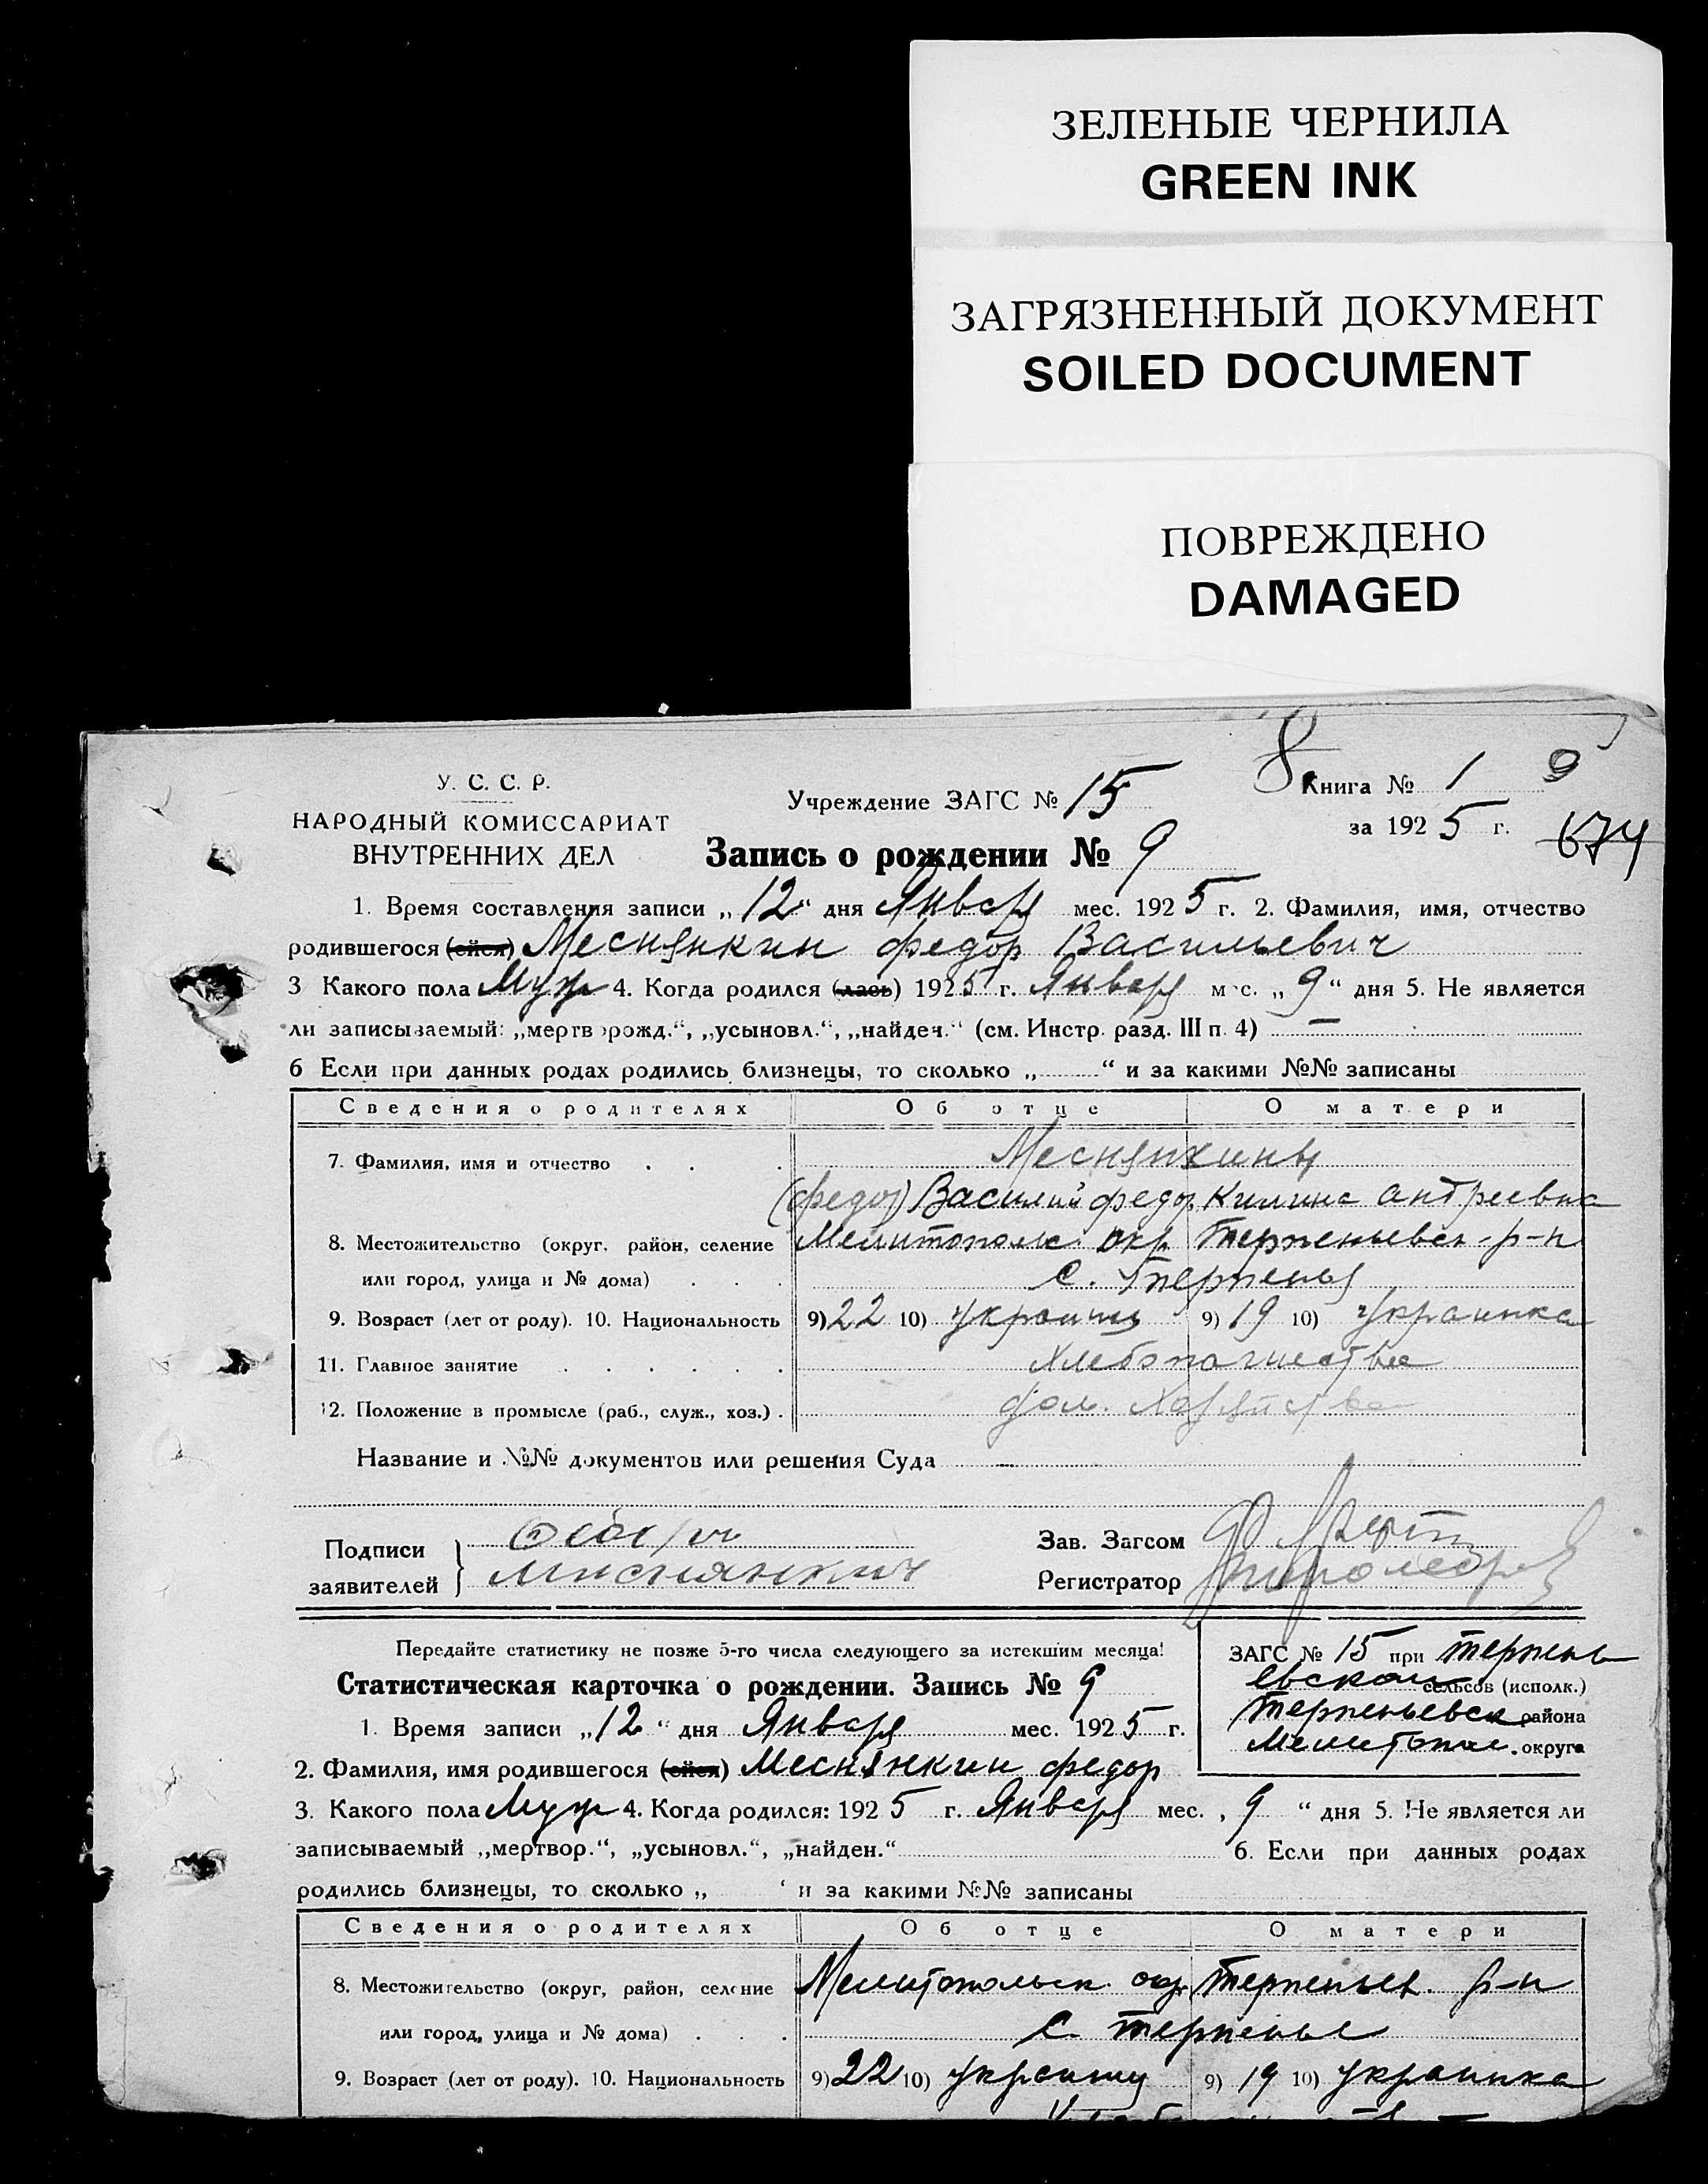 ЗЕЛЕНЫЕ ЧЕРНИЛА
GREEN INK
ЗАГРЯЗНЕННЫЙ ДОКУМЕНТ
SOILED DOCUMENT
ПОВРЕЖДЕНО
DAMAGED
У. С. С. Р.
НАРОДНЫЙ КОМИССАРИАТ
ВНУТРЕННИХ ДЕЛ
Учреждение ЗАГС № 15
Книга № 1 9
за 1925 г. 674
Запись о рождении № 9
1. Время составления записи „12“ дня Января мес. 1925 г. 2. Фамилия, имя, отчество
родившегося (ейся) Меснянкин Федор Васильевич
3 Какого пола Муж 4. Когда родился (лась) 1925 г. Января мес. „9“ дня 5. Не является
ли записываемый: „мертворожд.“, „усыновл.“, „найден.“ (см. Инстр. разд. III п. 4) —
6 Если при данных родах родились близнецы, то сколько „ “ и за какими №№ записаны
Сведения о родителях Об отце О матери
7. Фамилия, имя и отчество Меснянкины
(Федор) Василий Федор Килина Андреевна
8. Местожительство (округ, район, селение Мелитополь окр Терпеньевск р-н
или город, улица и № дома) с. Терпенья
9. Возраст (лет от роду). 10. Национальность 9) 22 10) украинц 9) 19 10) украинка
11. Главное занятие Хлебопашество
12. Положение в промысле (раб., служ., хоз.) дом. Хозяйство
Название и №№ документов или решения Суда —
Подписи
заявителей
Зав. Загсом
Регистратор
Передайте статистику не позже 5-го числа следующего за истекшим месяца!
ЗАГС № 15 при Терпень
евском сельсов (исполк.)
Терпеньевск района
Мелитопол. округа
Статистическая карточка о рождении. Запись № 9
1. Время записи „12“ дня Января мес. 1925 г.
2. Фамилия, имя родившегося (ейся) Меснянкин Федор
3. Какого пола Муж 4. Когда родился: 1925 г. Января мес. „9“ дня 5. Не является ли
записываемый „мертвор.“, „усыновл.“, „найден.“ 6. Если при данных родах
родились близнецы, то сколько „ “ и за какими №№ записаны
Сведения о родителях Об отце О матери
8. Местожительство (округ, район, селение Мелитопольск. окр. Терпеньев. р-н
или город, улица и № дома) с. Терпенье
9. Возраст (лет от роду). 10. Национальность 9) 22 10) украинц 9) 19 10) украинка